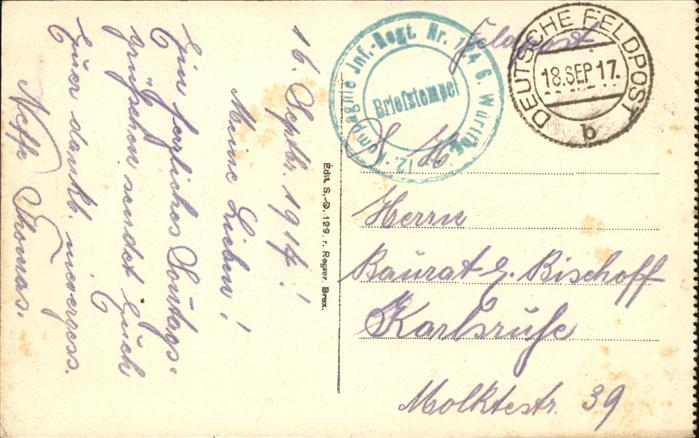 16. Septbr. 1917!
Meine Lieben!
Ein herzliches Sonntags-
grüßchen sendet Euch
Euer dankb.
Neffe Thomas.
Édit. S.-D. 129, r. Rogier, Brux.
12. Kompagnie Inf.-Regt. Nr. 124 6. Württbg.
Briefstempel
Feldpost.
DEUTSCHE FELDPOST
18.SEP.17.
b
Herrn
Baurat E. Bischoff
Karlsruhe
Molktestr. 39